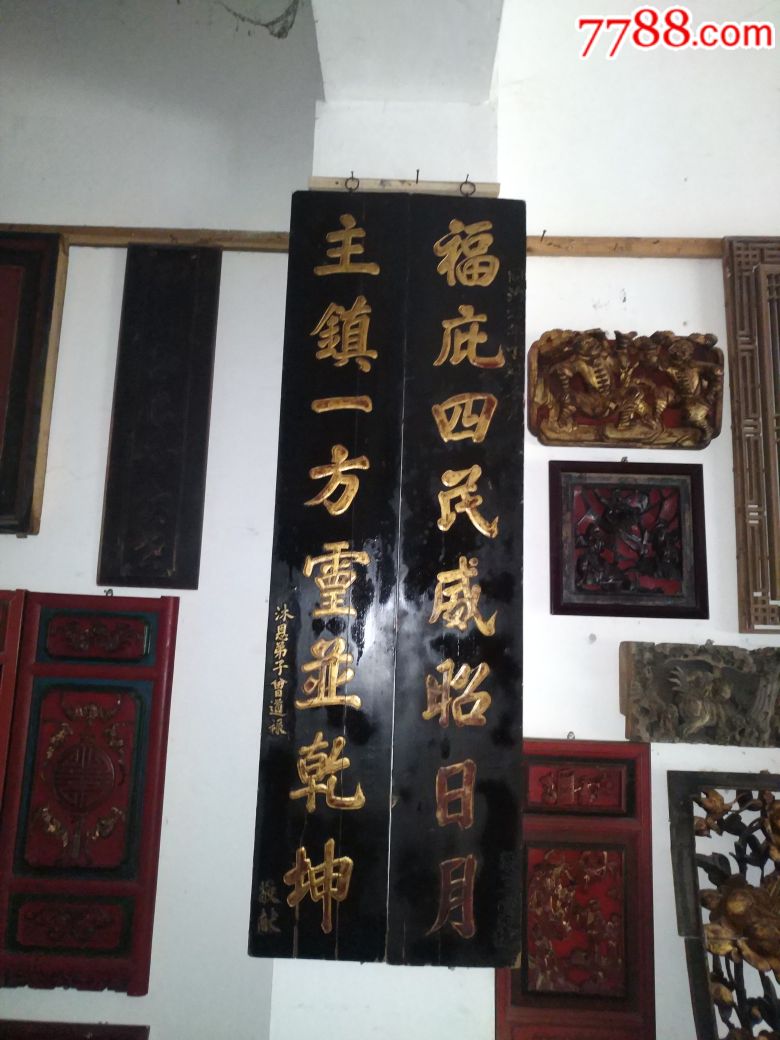 7788.com
福庇四民威昭日月
主鎮一方靈並乾坤
沐恩弟子曾道禄
敬献